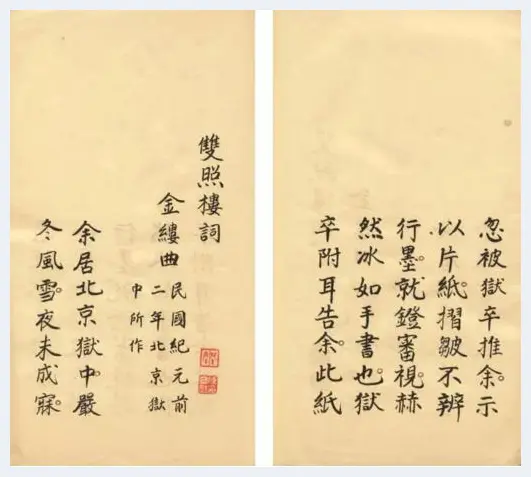 雙照樓詞
金縷曲 民國紀元前
二年北京獄
中所作
余居北京獄中。嚴
冬風雪。夜未成寐。
忽被獄卒推余。示
以片紙。摺皺不辨
行墨。就鐙審視。赫
然冰如手書也。獄
卒附耳告余。此紙